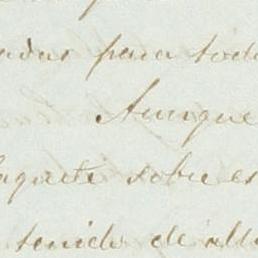 adas para todo
Aunque
aquete sobre es
tenido de ell